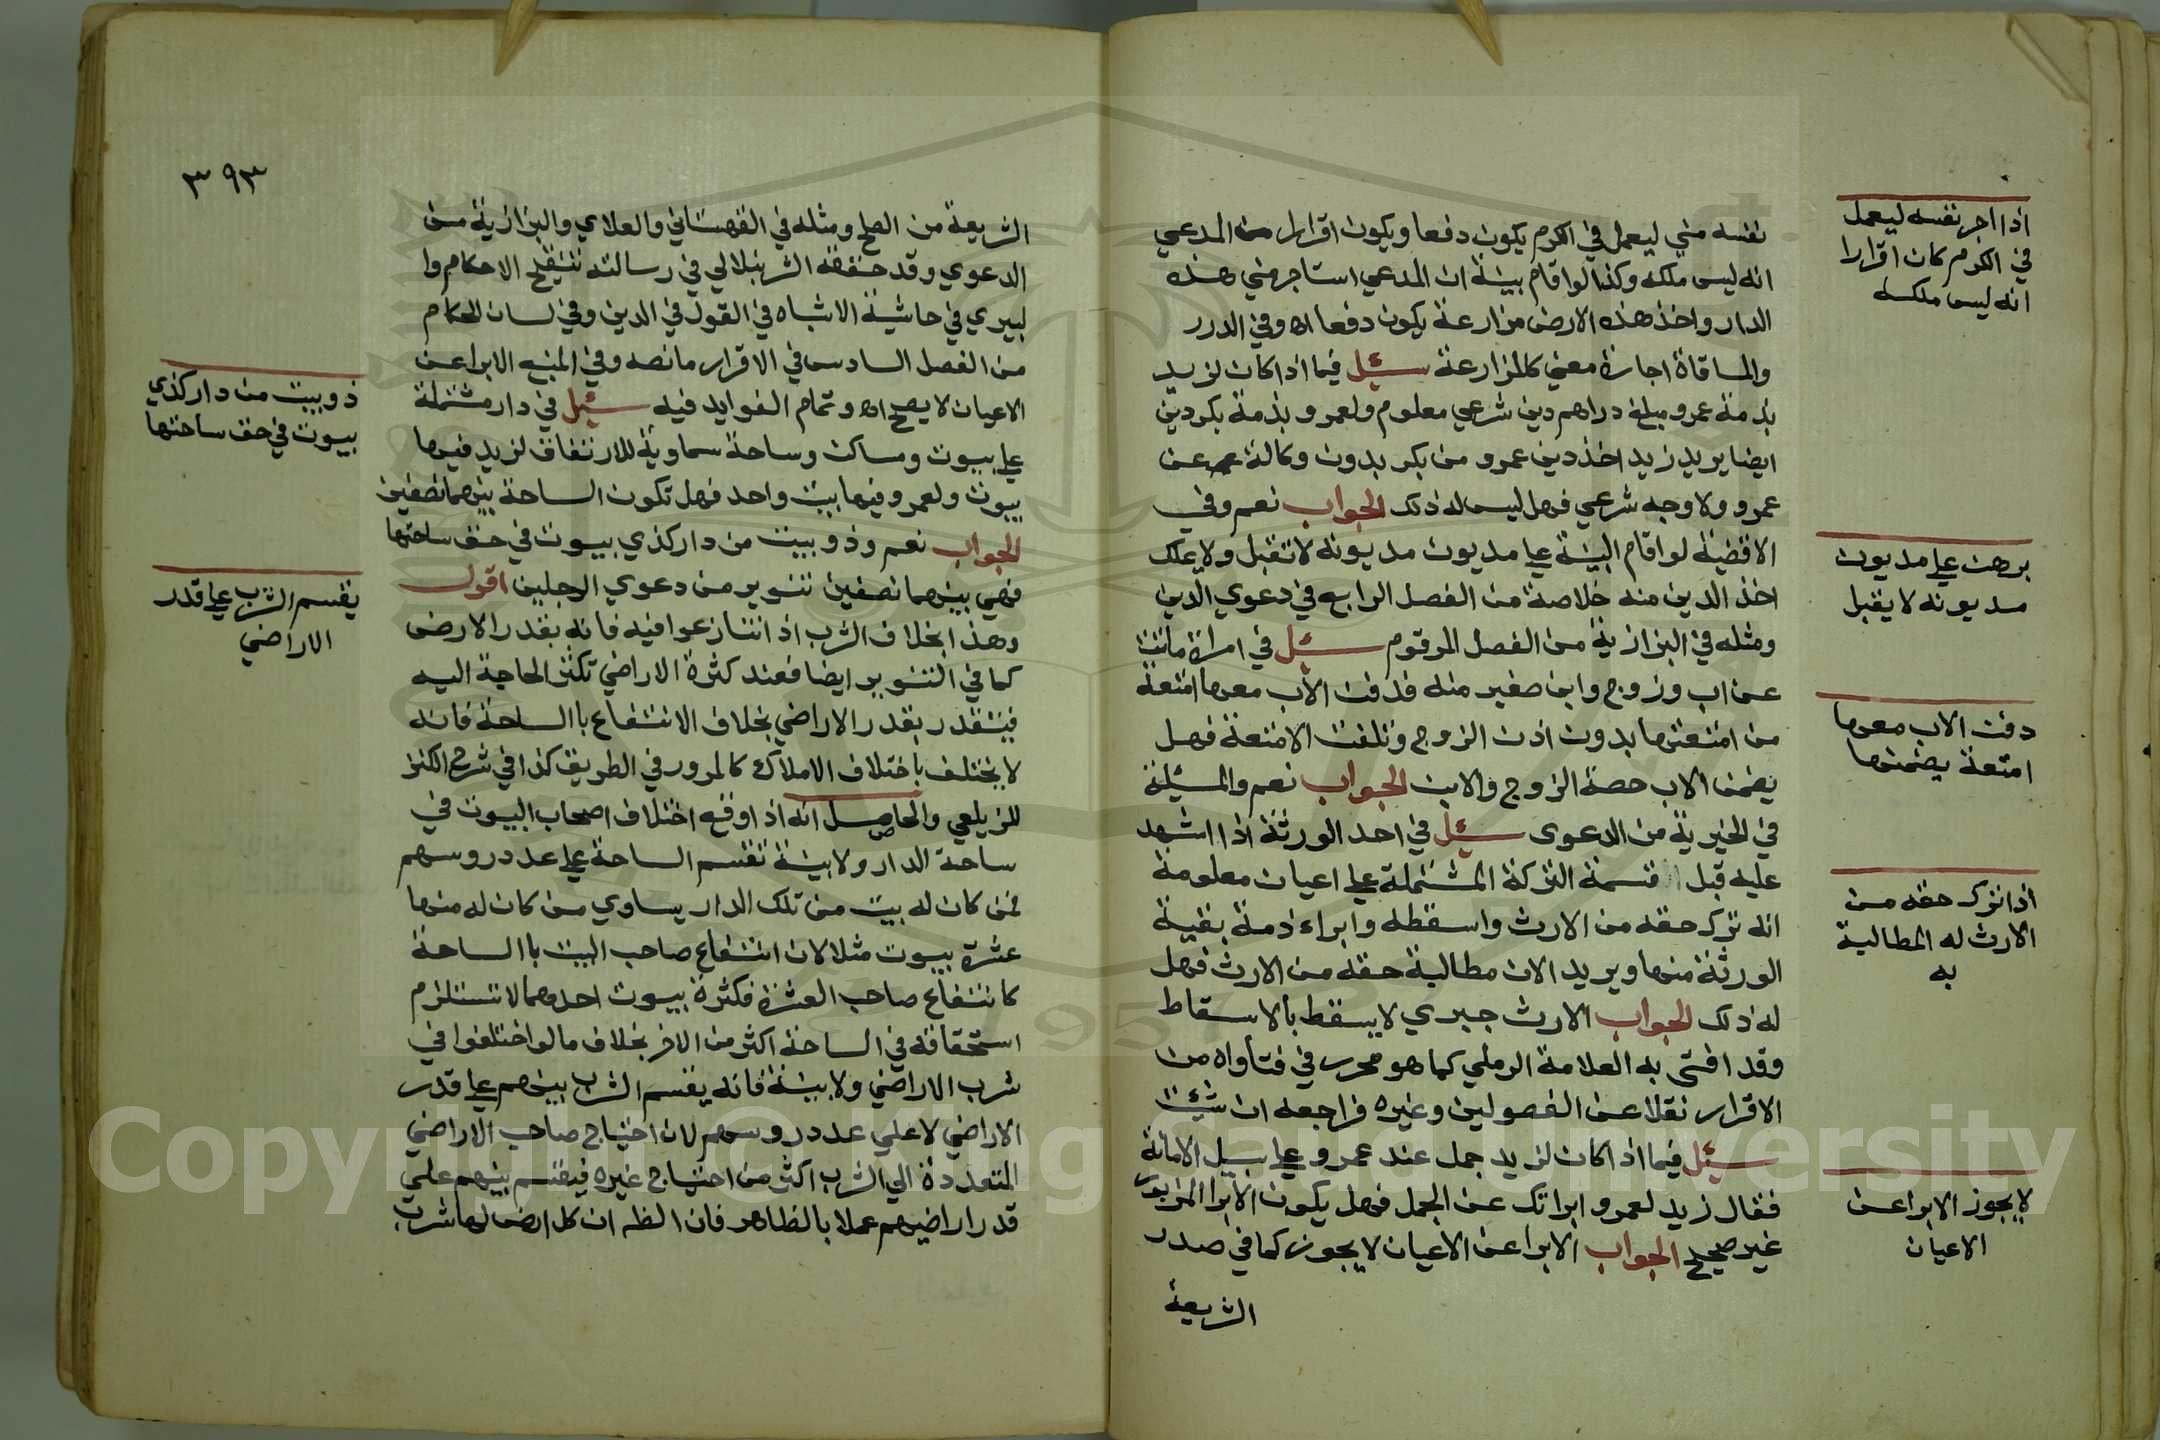 اذا اجر نفسه ليعمل
في الكرم كان اقرارا
انه ليس ملكه
برهن علي مديون
مديونه لا يقبل
دفن الاب معها
امتعة يضمنها
اذا ترك حقه من
الارث له المطالبة
به
لا يجوز الابرا عن
الاعيان
نفسه مني ليعمل في الكرم يكون دفعا ويكون اقرارا من المدعي
انه ليس ملكه وكذا لو اقام بينة ان المدعي استاجر مني هذه
الدار واخذ هذه الارض مزارعة يكون دفعا اه وفي الدرر
والمساقاة اجارة معني كالمزارعة سئل فيما اذا كان لزيد
بذمة عمرو مبلغ دراهم دين شرعي معلوم ولعمرو بذمة بكر دين
ايضا يريد زيد اخذ دين عمرو من بكر بدون وكالة عن
عمرو ولا وجه شرعي فهل ليس له ذلك الجواب نعم وفي
الاقضية لو اقام البينة علي مديون مديونه لا تقبل ولا يملك
اخذ الدين منه خلاصة من الفصل الرابع في دعوي الدين
ومثله في البزازية من الفصل المرقوم سئل في امراة ماتت
عن اب وزوج وابن صغير منه فدفن الاب معها امتعة
من امتعتها بدون اذن الزوج وتلفت الامتعة فهل
يضمن الاب حصة الزوج والابن الجواب نعم والمسئلة
في الخيرية من الدعوى سئل في احد الورثة اذا اشهد
عليه قبل قسمة التركة المشتملة علي اعيان معلومة
انه ترك حقه من الارث واسقطه وابراء ذمة بقية
الورثة منها ويريد الان مطالبة حقه من الارث فهل
له ذلك الجواب الارث جبري لا يسقط بالاسقاط
وقد افتى به العلامة الرملي كما هو محرر في فتاواه من
الاقرار نقلا عن الفصولين وغيره فراجعه ان شئت
سئل فيما اذا كان لزيد جمل عند عمرو علي سبيل الامانة
فقال زيد لعمرو ابراتك عن الجمل فهل يكون الابرا المزبور
غير صحيح الجواب الابرا عن الاعيان لا يجوز كما في صدر
الشريعة
٣٩٣
الشريعة من الصلح ومثله في القهستاني والعلاي والبزازية من
الدعوي وقد حققه الشرنبلالي في رسالته تنقيح الاحكام وا
لبيري في حاشية الاشباه في القول في الدين وفي لسان الحكام
من الفصل السادس في الاقرار ما نصه وفي المنبع الابرا عن
الاعيان لا يصح اه وتمام الفوايد فيه سئل في دار مشتملة
علي بيوت ومساكن وساحة سماوية للارتفاق لزيد فيها
بيوت ولعمرو فيها بيت واحد فهل تكون الساحة بينهما نصفين
الجواب نعم وذو بيت من دار كذي بيوت في حق ساحتها
فهي بينهما نصفين تنوير من دعوي الرجلين اقول
وهذا بخلاف الشرب اذا تنازعوا فيه فانه بقدر الارض
كما في التنوير ايضا فعند كثرة الاراضي تكثر الحاجة اليه
فيتقدر بقدر الاراضي بخلاف الانتفاع باالساحة فانه
لا يختلف باختلاف الاملاك كالمرور في الطريق كذا في شرح الكنز
للزيلعي والحاصل انه اذا وقع اختلاف اصحاب البيوت في
ساحة الدار ولا بينة تقسم الساحة علي عدد روسهم
فمن كان له بيت من تلك الدار يساوي من كان له منها
عشرة بيوت مثلا لان انتفاع صاحب البيت باالساحة
كانتفاع صاحب العشرة فكثرة بيوت احدهما لا تستلزم
استحقاقه في الساحة اكثر من الاخر بخلاف ما لو اختلفوا في
شرب الاراضي ولا بينة فانه يقسم الشرب بينهم علي قدر
الاراضي لا علي عدد روسهم لان احتياج صاحب الاراضي
المتعددة الي الشرب اكثر من احتياج غيره فيقسم بينهم علي
قدر اراضيهم عملا بالظاهر فان الظه ان كل ارض لها شرب
ذو بيت من دار كذي
بيوت في حق ساحتها
يقسم الشرب علي قدر
الاراضي
1957
Copyright © King Saud University